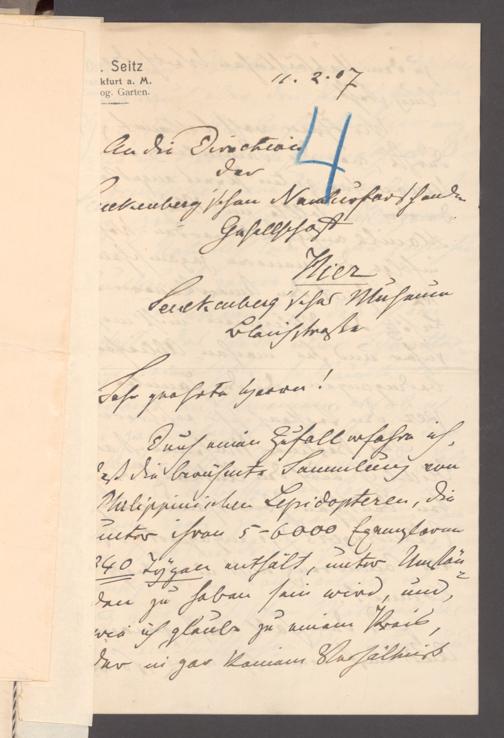 . Seitz
kfurt a. M.
og. Garten.
11. 2. 07
4
An die Direction
der
uckenberg'schen Naturforschenden
Gesellschaft
Hier
Senckenberg'sches Museum
Bleichstraße
Sehr geehrte Herren!
Durch einen Zufall erfahre ich,
daß die berühmte Sammlung von
Philippinischen Lepidopteren, die
unter ihren 5-6000 Exemplaren
240 Typen enthält, unter Umstän-
den zu haben sein wird, und,
wie ich glaube zu einem Preis,
der in gar keinem Verhältnis